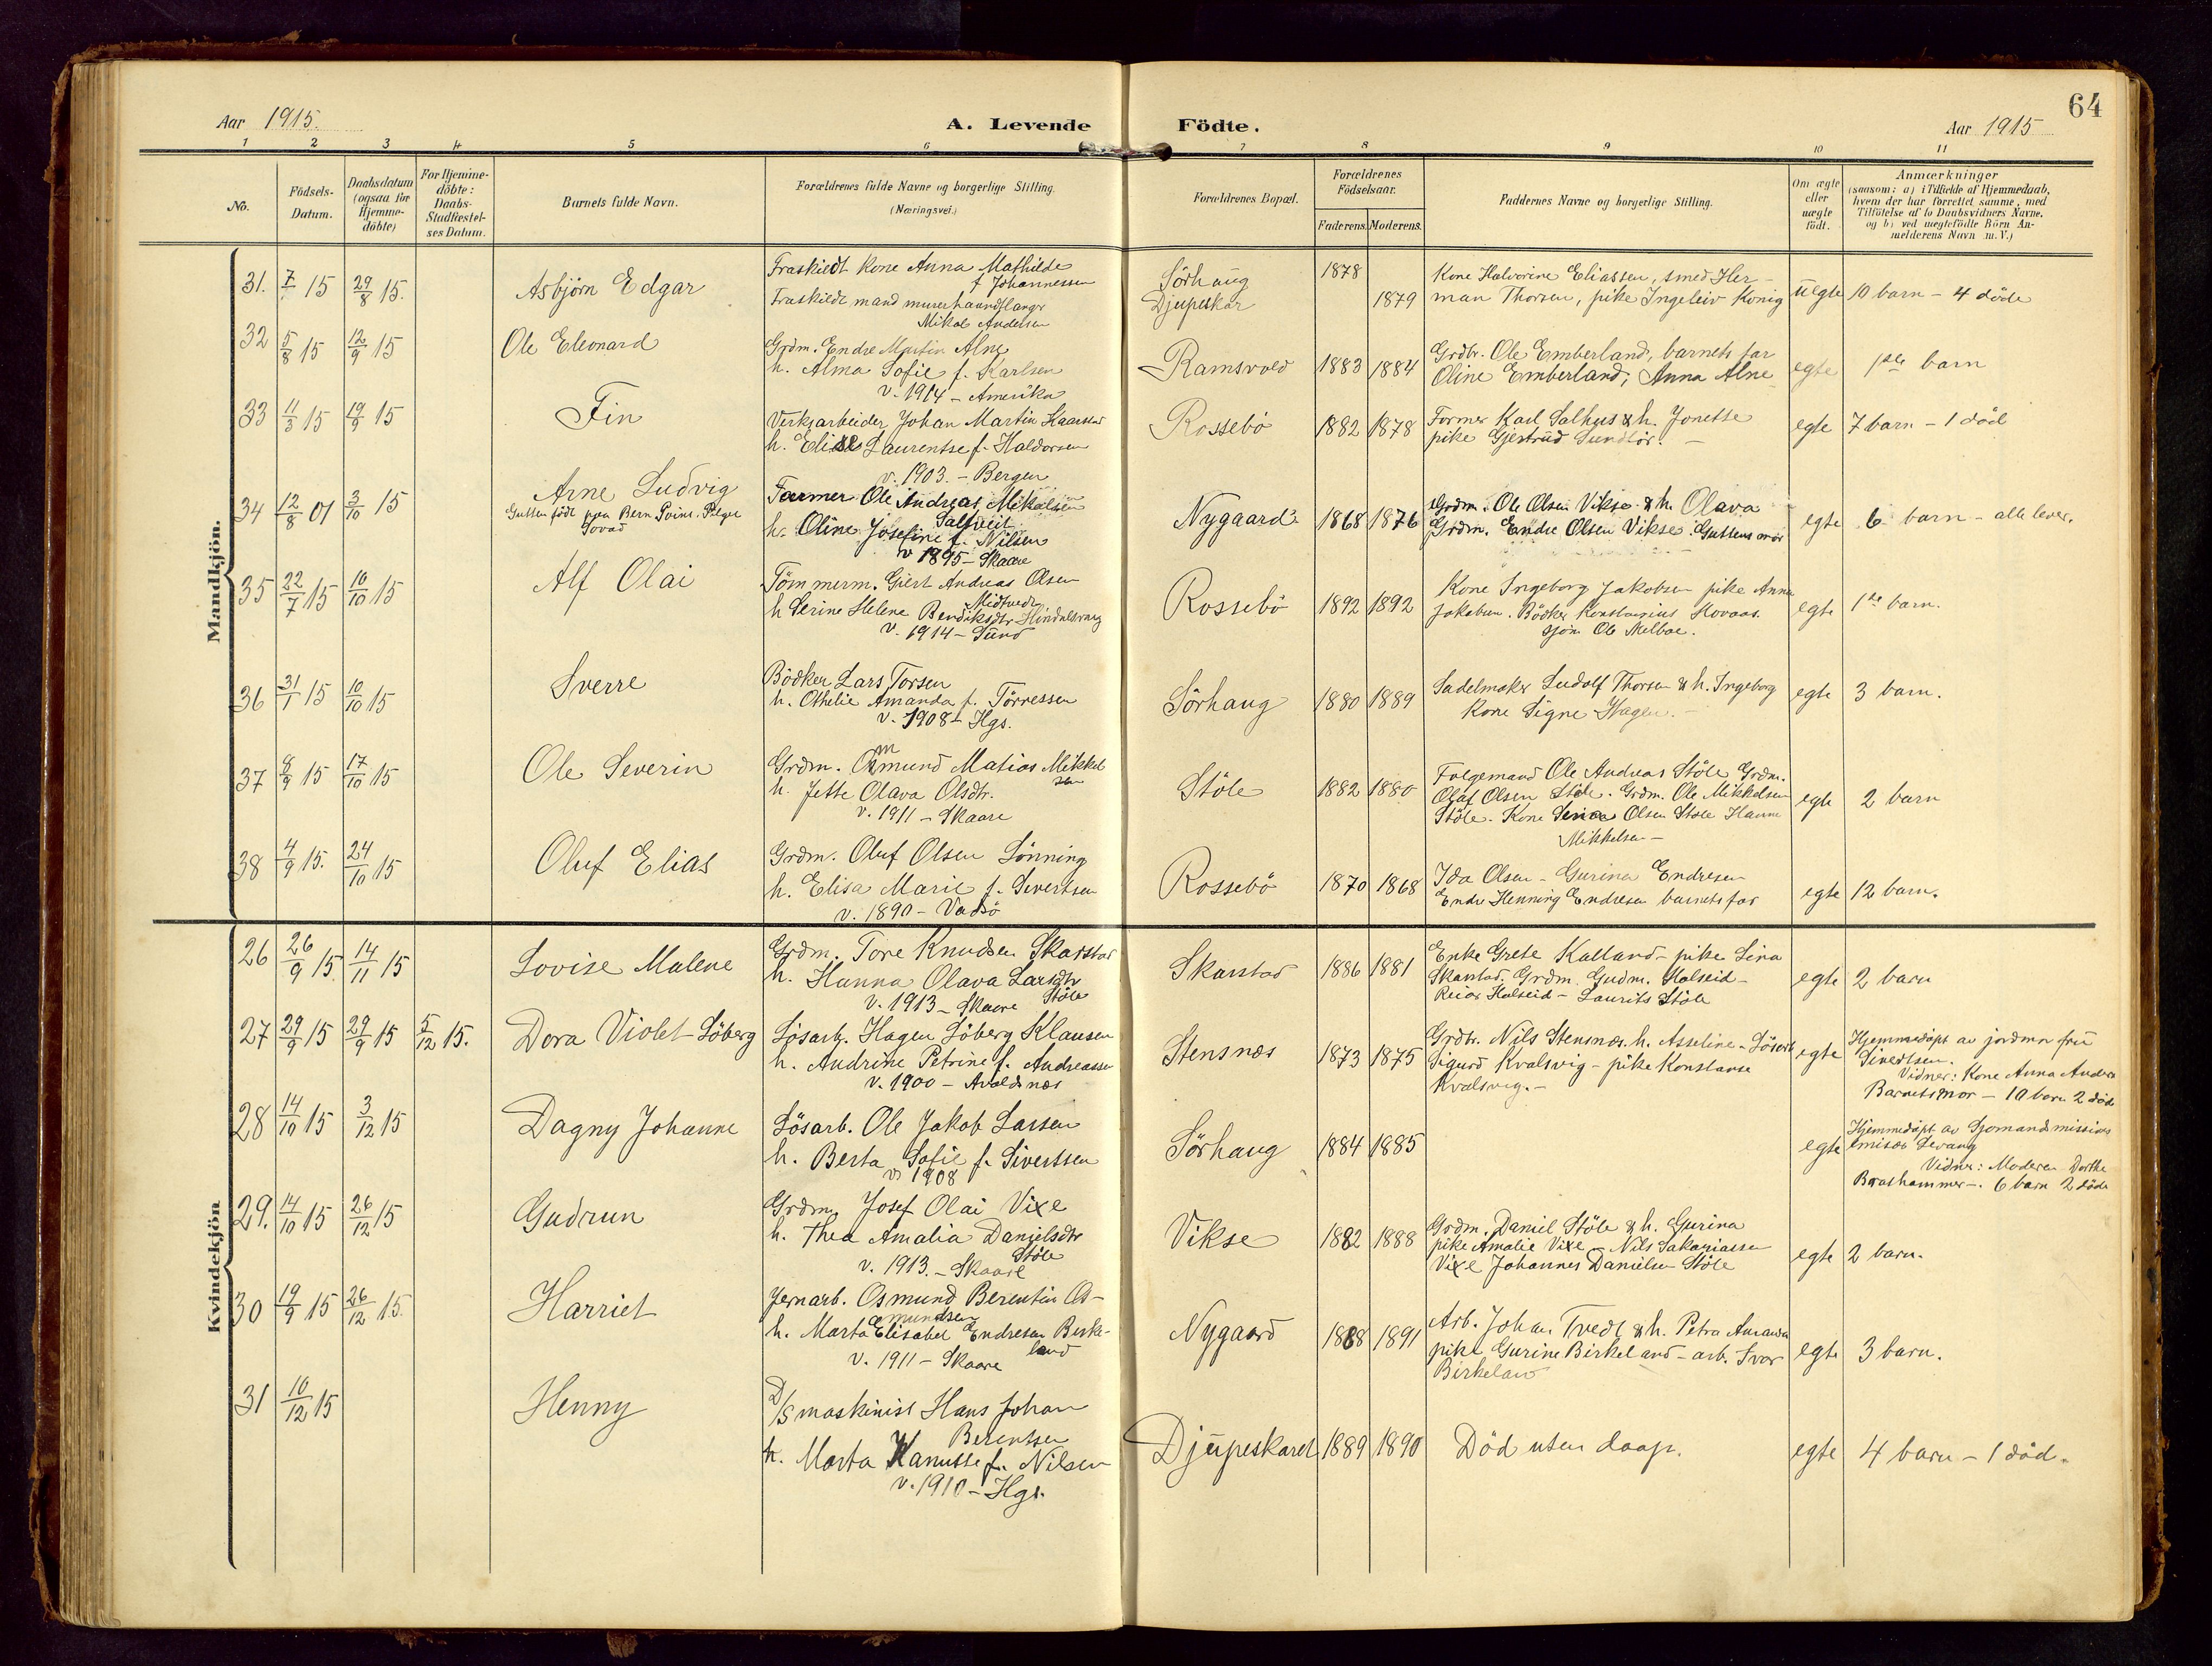 64
Aar 1915.
A. Levende Födte.
Aar 1915
1 2 3 4 5 6 7 8 9 10 11
No.
Födsels-
Datum.
Daabsdatum
(ogsaa for
Hjemme-
döbte)
For Hjemme-
döbte:
Daabs-
Stadfæstel-
ses Datum.
Barnets fulde Navn.
Forældrenes fulde Navne og borgerlige Stilling.
(Næringsvei.)
Forældrenes Bopæl.
Forældrenes
Födselsaar.
Faderens. Moderens.
Faddernes Navne og borgerlige Stilling.
Om ægte
eller
uægte
födt.
Anmærkninger
(saasom: a) i Tilfælde af Hjemmedaab,
hvem der har forrettet samme, med
Tilföielse af to Daabsvidners Navne,
og b) ved uægtefödte Börn An-
melderens Navn m. V.)
Mandkjön.
31. 7/ 15 29/8 15.
Asbjörn Edgar
Fraskiedt kone Anna Mathilde
f Johannessen
Fraskildt mand murerhaandlanger
Mikal Andersen
Sörhaug
Djupeskar
1878
1879
Kone Halvorine Eliassen, smed Her-
man Thorsen, pike Ingeleiv Konig
uegte
10 barn - 4 döde
32 5/8 15 12/9 15
Ole Eleonard
Grdm. Endre Martin Alne
h. Alma Sofie f. Karlsen
v. 1914 - Amerika
Ramsvold
1883 1884
Grdbr. Ole Emberland, barnets far
Oline Emberland, Anna Alne
egte
1ste barn
33 11/3 15 19/9 15
Fin
Verksarbeider Johan Martin Kaarstad
h. Elise Laurentse f. Haldorsen
v. 1903. - Bergen
Rossebö
1882 1878
Former Karl Salhus & h. Jonette
pike Gjertrud Sundför. -
egte
7 barn - 1 död
34 12/8 01 3/10 15
Arne Ludvig
Farmer Ole Andreas Mikalsen
Saltveit
h. Oline Josefine f. Nilsen
v 1895 - Skaare
Nygaard
1868 1876
Grdm. Ole Olsen Vikse & h. Olava
Grdm. Endre Olsen Vikse. Guttens mor
egte
6 barn - alle lever.
35 22/7 15 10/10 15
Alf Olai
Tömmerm. Giert Andreas Olsen
Midtvedt
h Serine Helene Bendiksdtr
v. 1914 - Sund
Rossebö
1892 1892
Kone Ingeborg Jakobsen pike Anna
Jakobsen. Bödker Konstansius Hovaas.
sjöm Ole Melboe.
egte
1ste barn.
36 31/1 15 10/10 15
Sverre
Bödker Lars Torsen
h. Othelie Amanda f. Törressen
v. 1908 - Hgs.
Sörhaug
1880 1889
Sadelmaker Ludolf Thorsen & h. Ingeborg
Kone Signe Hagen. -
egte
3 barn.
37 8/9 15 17/10 15
Ole Severin
Grdm. Ommund Matias Mikkel
sen
h. Jette Olava Olsdtr.
v. 1911 - Skaare
Stöle
1882 1880
Folgemand Ole Andreas Stöle Grdm.
Olaf Olsen Stöle. Grdm. Ole Mikkelsen
Stöle. Kone Olsen Stöle Hanne
Mikkelsen -
egte
2 barn
38 4/9 15. 24/10 15
Oluf Elias
Grdm. Oluf Olsen Lönning
h. Elisa Marie f. Sivertsen
v. 1890 - Vadsö
Rossebö
1870 1868
Ida Olsen - Gurina Endresen
Endre Henning Endresen barnets far
egte
12 barn.
Kvindekjön
26 26/9 15 14/11 15
Lovise Malene
Grdm. Tore Knudsen Skarstad
h. Hanna Olava Larsdtr
Stöle
v. 1913 - Skaare
Skarstad
1886 1881
Enke Grete Kalland - pike Lina
Skarstad. Grdm. Gudm. Halseid -
Reiar Halseid - Laurits Stöle
egte
2 barn
27 29/9 15 29/9 15 5/12 15.
Dora Violet Söberg
Lösarb. Hagen Söberg Klausen
h. Andrine Petrine f. Andreassen
v. 1900 - Avaldsnes
Stensnæs
1873 1875
Grdbr. Nils Stensnæs. h. Asseline - Lösarb
Sigurd Kvalsvig - pike Konstanse
Kvalsvig. -
egte
Hjemmedöpt av jordmor fru
Sivertsen.
Vidner: Kone Anna Anders
Barnets mor - 10 barn 2 död
28 14/10 15 3/12 15
Dagny Johanne
Lösarb. Ole Jakob Larsen
h. Berta Sofie f. Sivertsen
v. 1908
Sörhaug
1884 1885
egte
Hjemmedöpt av Sjomandsmissions
emisær Levang
Vidner: Moderen Dorthe
6 barn 2 döde
29. 14/10 15 26/12 15
Gudrun
Grdm. Josef Olai Vixe
h. Thea Amalia Danielsdtr
Stöle
v. 1913. - Skaare
Vikse
1882 1888
Grdm. Daniel Stöle & h. Gurina
pike Amalie Vixe - Nils Sakariassen
Vixe Johannes Danielsen Stöle
egte
2 barn.
30 19/9 15 26/12 15.
Harriet
Jernarb. Osmund Berentin Os-
mundsen
h. Marta Elisabet Endresen Birke-
land
v. 1911 - Skaare
Nygaard
1888 1891
Arb. Johan Tvedt & h. Petra Amanda
pike Gurine Birkeland - arb. Ivar
Birkeland
egte
3 barn.
31 10/12 15
Henny
D/S maskinist Hans Johan
Berentsen
h. Marta Kanutte f. Nilsen
v. 1910 - Hgs.
Djupeskaret
1889 1890
Död uten daap.
egte
4 barn - 1 död.